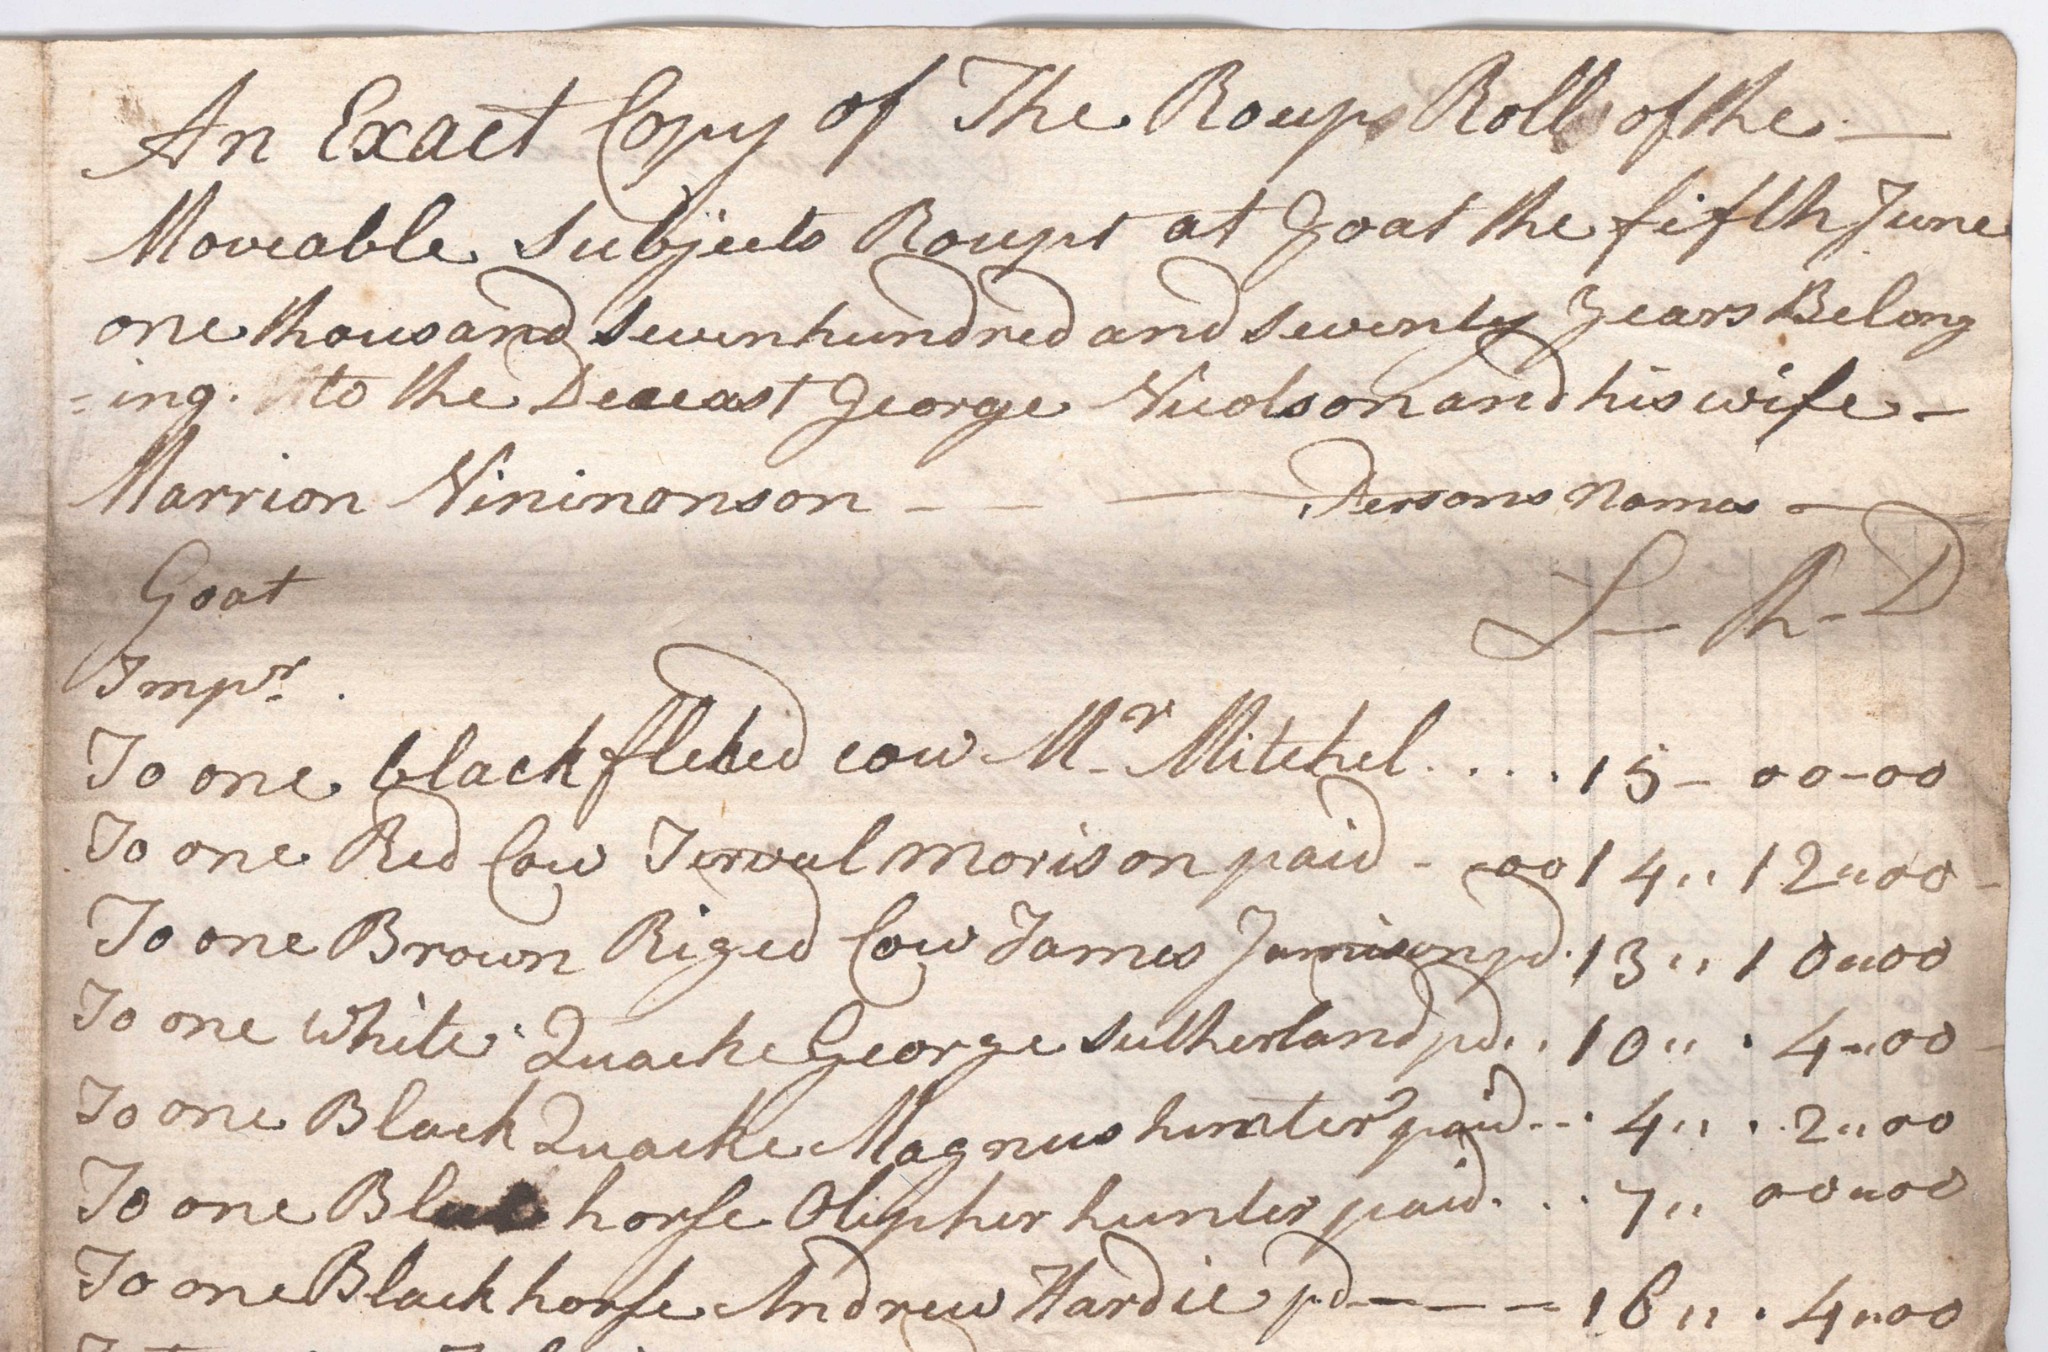 An Exact Copy of The Roup Roll of the
Moveable Subjects Roupt at Goat the fifth June
one thousand seven hundred and seventy years Belong
-ing to the Deceast George Nicolson and his wife
Marrion Nininonson - - — Persons Names —
Goat
L - Sh - D
Impr.
To one black fleked cow Mr Mitchel .... 15 - 00-00
To one Red Cow morison paid - -00 14 ,, 12 ,, 00 -
To one Brown Riged Cow James Jamison pd. 13 ,, 10 ,, 00
To one white Quacke George Sutherland pd .. 10 ,, . 4 ,, 00 -
To one Black Quacke Magnus hunter paid --. 4 ,, . 2 ,, 00
To one horse Olipher hunter paid . . . 7 ,, 00 ,, 00
To one Black horse Andrew Hardie pd - - - - 16 ,, . 4 ,, 00